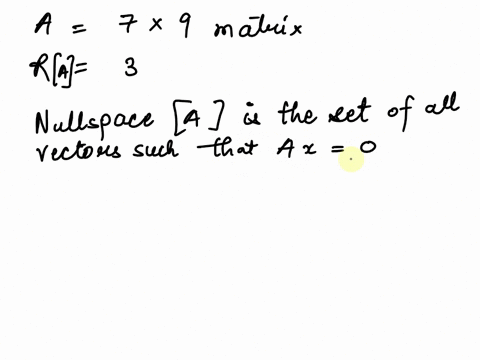 A = 7 × 9 matrix
R[A] = 3
Nullspace [A] is the set of all
vectors such that Ax = 0